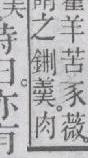 藿羊苦豕薇
之鉶羹肉
詩曰亦有